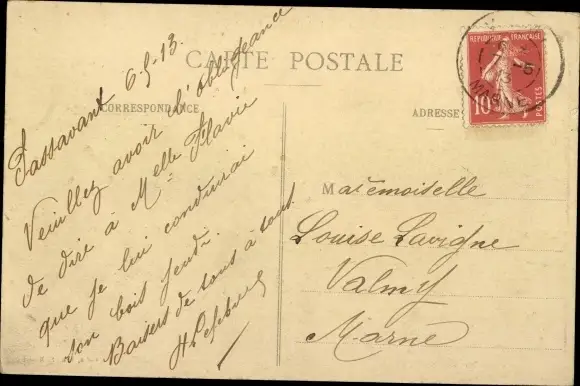 CARTE POSTALE
CORRESPONDANCE
ADRESSE
Passavant 6-5-13.
Veuillez avoir l'obligeance
de dire à Melle Flavie
que je lui conduirai
son bois jeudi.
Baisers de tous à tous
H Lefebvre
REPUBLIQUE FRANÇAISE
10
POSTES
MARNE
Mademoiselle
Louise Lavigne
Valmy
Marne